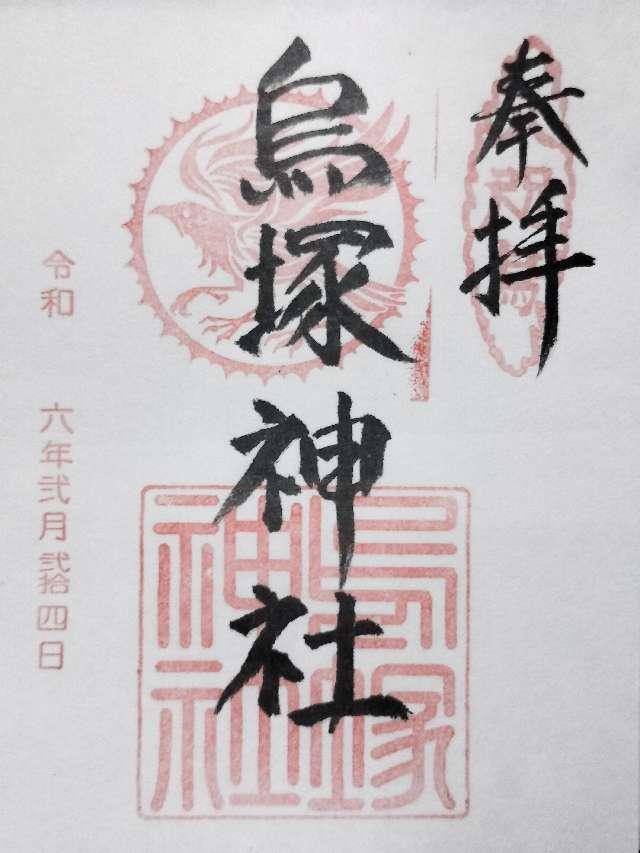 奉拝
烏塚神社
烏塚
神社
令和 六年弐月弐拾四日